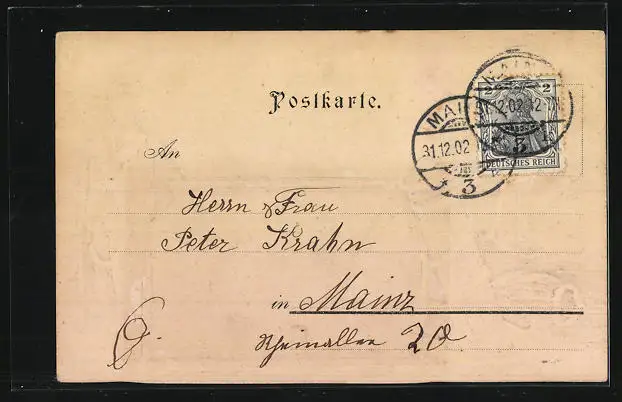 Postkarte.
2 2
DEUTSCHES REICH
31.12.02 12-
5
MAINZ
31.12.02
3
An
Herrn & Frau
Peter Krahn
in Mainz
Rheinallee 20
6.